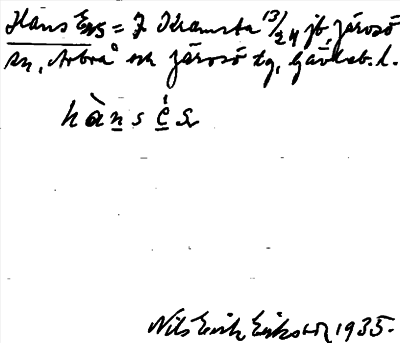 Hans Ers = 7 Kramsta 13/24 jb, Järvsö
sn, Arbrå sn Järvsö tg, Gävleb. l.
hànsés
Nils Erik Eriksson 1935.